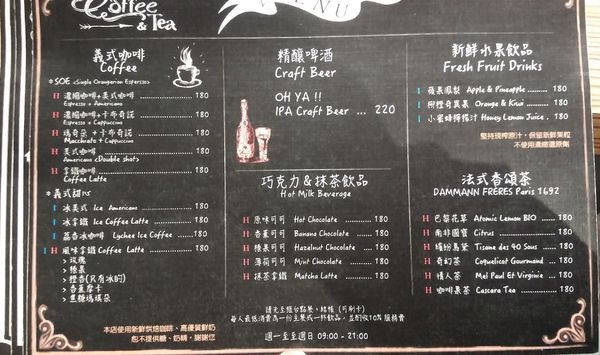 Coffee & Tea
MENU
義式咖啡
Coffee
*SOE <Single Orangerion Espersso>
H 濃縮咖啡+美式咖啡 180
Espresso + Americano
H 濃縮咖啡+卡布奇諾 180
Espresso + Cappuccino
H 瑪奇朵+卡布奇諾 180
Macchiato + Cappuccino
H 美式咖啡 180
Americano <Double shot>
H 拿鐵咖啡 180
Coffee Latte
*義式甜心
I 冰美式 Ice Americano 180
I 冰拿鐵 Ice Coffee Latte 180
I 荔香冰咖啡 Lychee Ice Coffee 180
I H 風味拿鐵 Coffee Latte 180
> 玫瑰
> 榛果
> 橙香(只有冰的)
> 香蕉摩卡
> 焦糖瑪琪朵
本店使用新鮮烘焙咖啡、高優質鮮奶
恕不提供糖、奶精,謝謝您
精釀啤酒
Craft Beer
OH YA !!
IPA Craft Beer ... 220
巧克力&抹茶飲品
Hot Milk Beverage
H 原味可可 Hot Chocolate 180
H 香蕉可可 Banana Chocolate 180
H 榛果可可 Hazelnut Chocolate 180
H 薄荷可可 Mint Chocolate 180
H 抹茶拿鐵 Matcha Latte 180
新鮮水果飲品
Fresh Fruit Drinks
I 蘋果鳳梨 Apple & Pineapple 180
I 柳橙奇異果 Orange & Kiwi 180
I 小蜜蜂檸檬汁 Honey Lemon Juice 180
堅持現榨原汁,保留新鮮果粒
不使用濃縮還原劑
法式香頌茶
DAMMANN FRÈRES Paris 1692
H 巴黎花草 Atomic Lemon BIO 180
H 南非國寶 Citrus 180
H 繽紛馬黛 Tisane des 40 Sous 180
H 奇幻茶 Coquelicot Gourmand 180
H 情人茶 Mel Paul Et Virginie 180
H 咖啡果茶 Cascara Tea 180
請先至櫃台點餐、結帳 (可刷卡)
每人最低消費為一份主餐或一杯飲品,並酌收10% 服務費
週一至週日 09:00 - 21:00